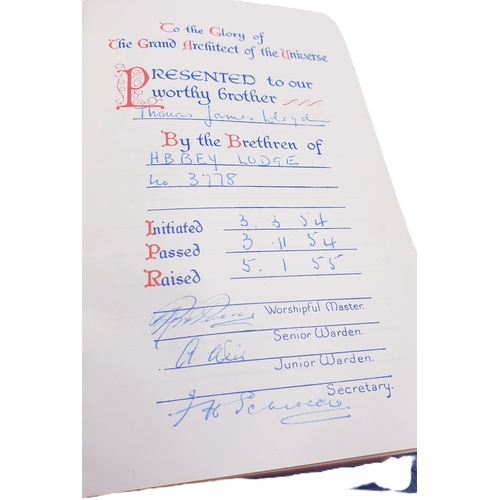 To the Glory of
The Grand Architect of the Universe
PRESENTED to our
worthy brother
Thomas James Lloyd
By the Brethren of
ABBEY LODGE
No 3778
Initiated 3. 3 54
Passed 3 . 11 54
Raised 5. 1 55
Worshipful Master.
Senior Warden.
A. Weir
Junior Warden.
Secretary.